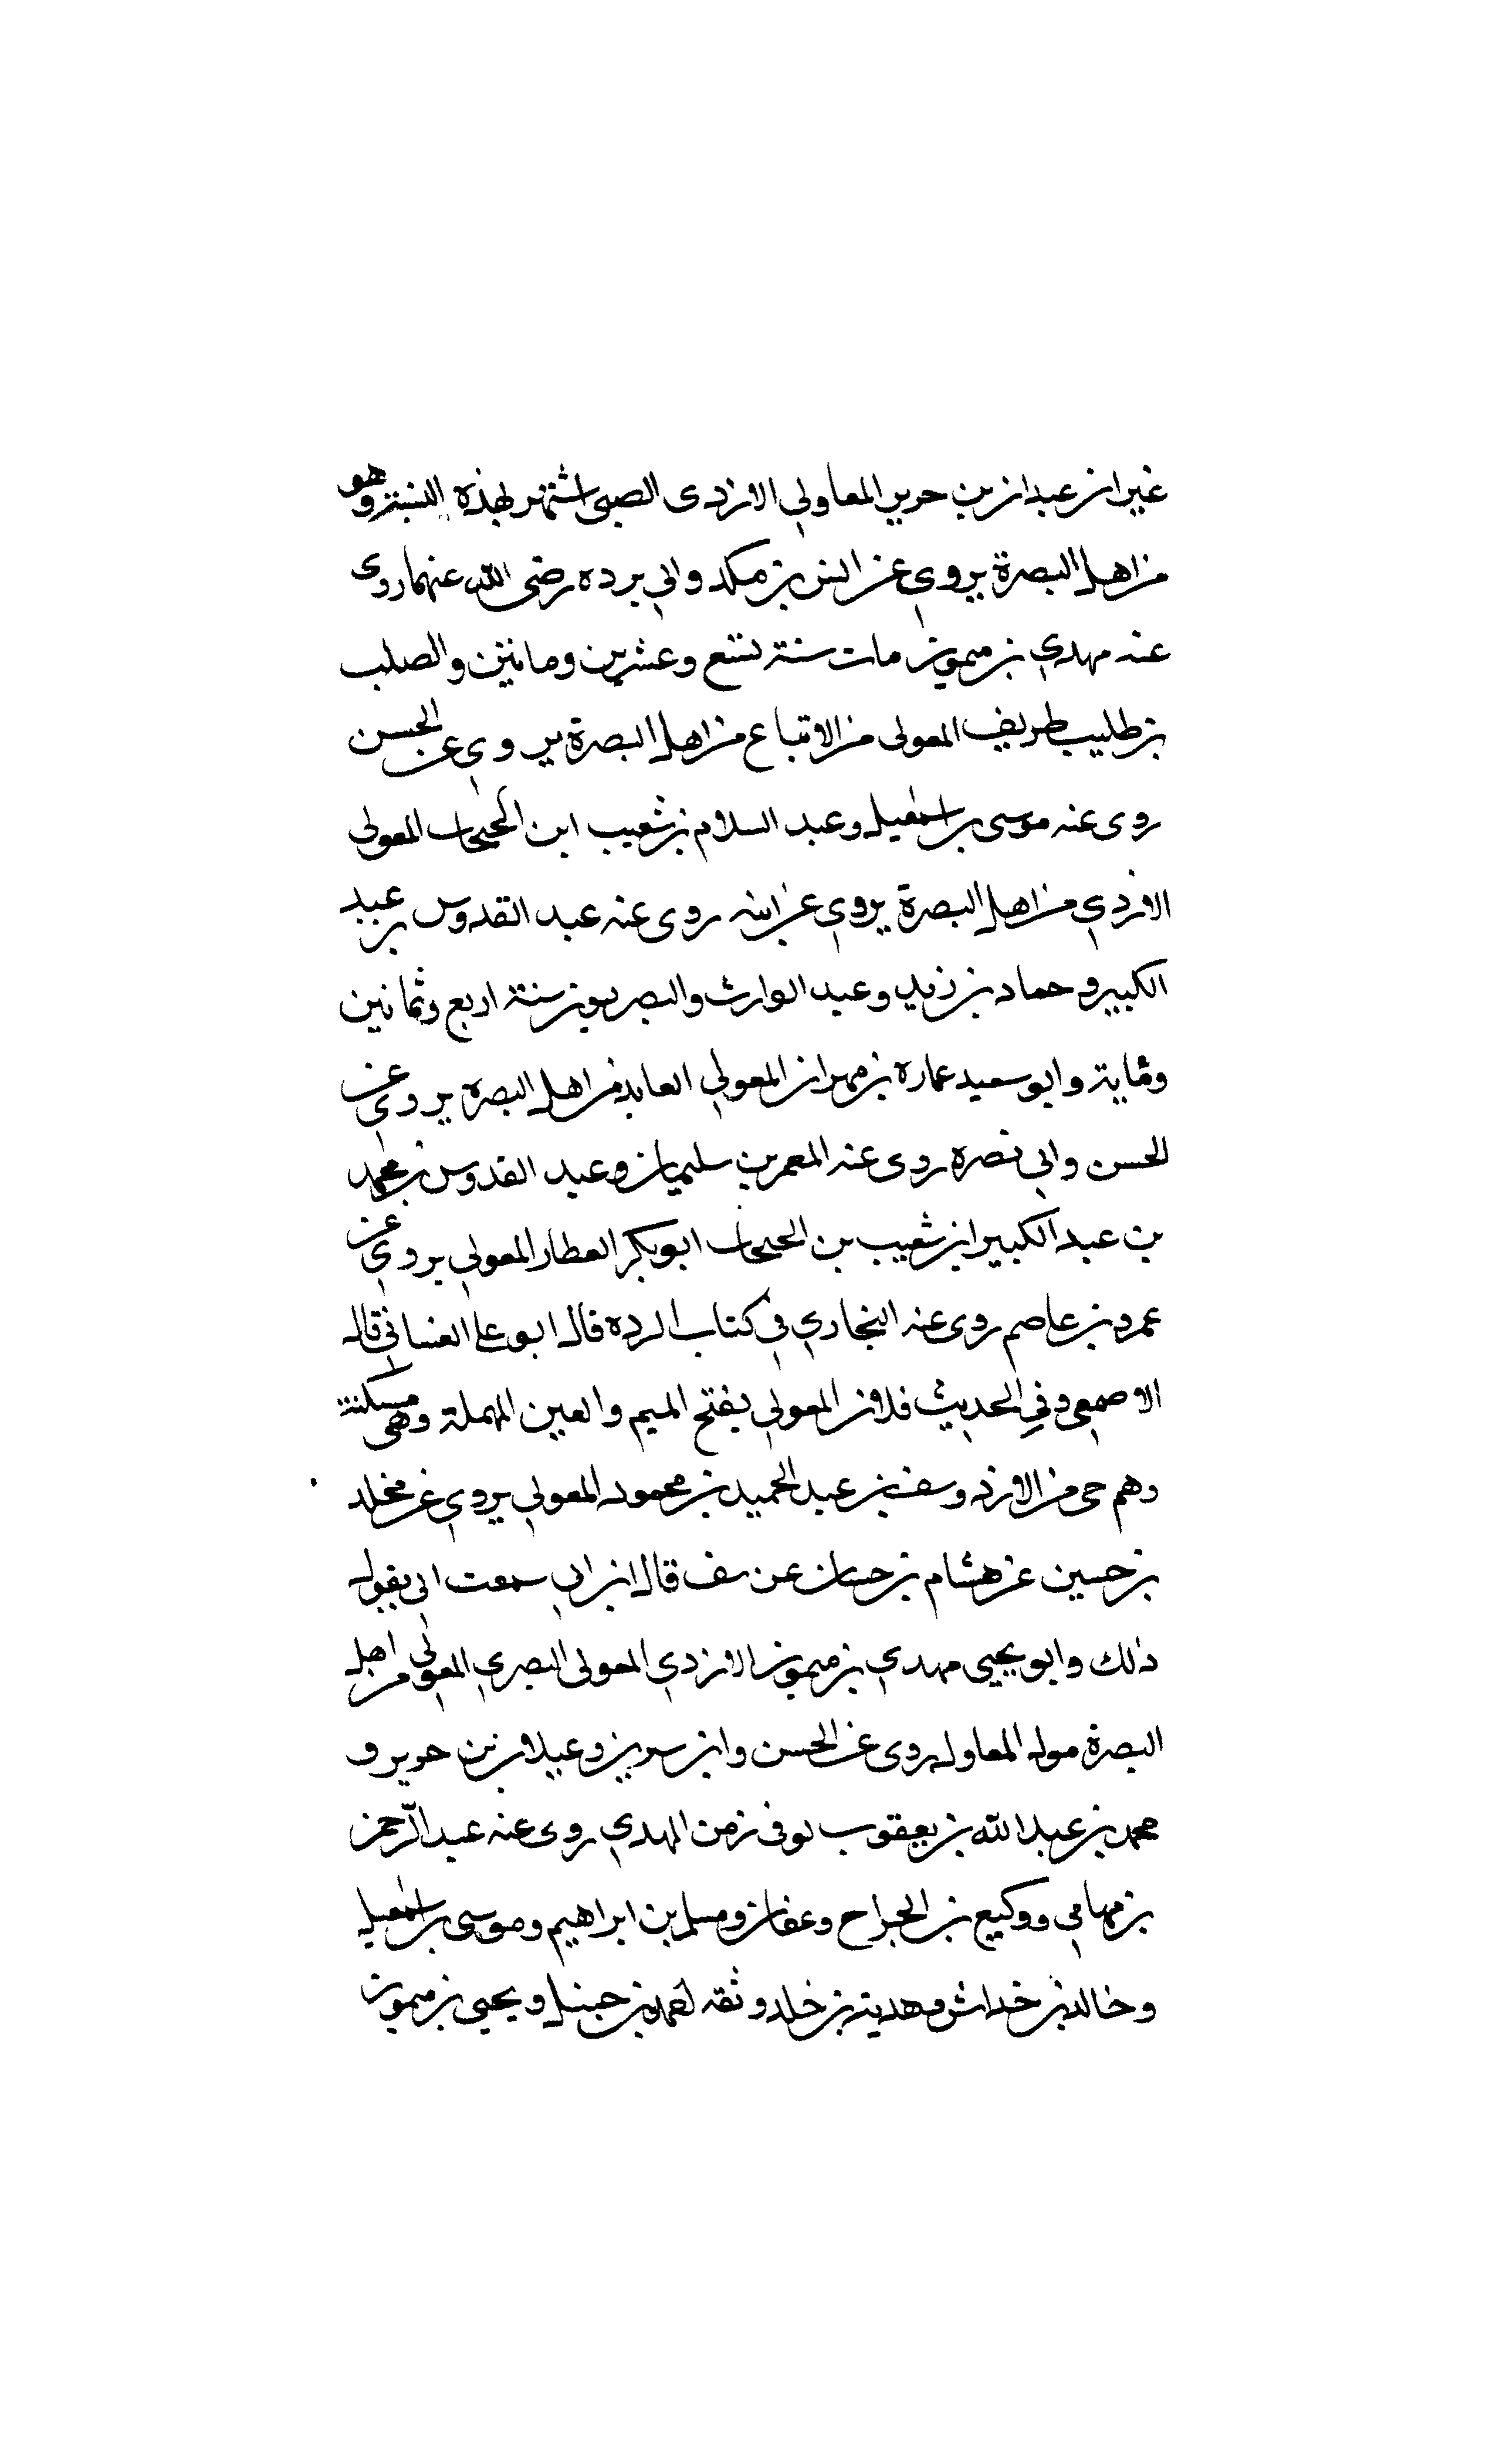 غير ان عبدان بن حرير المعاولي الازدى الصبى اشتهر بهذه النسبة وهو
من اهل البصرة يروي عن انس بن ملك وابي برده رضى الله عنهما روى
عنه مهدي بن ميمون مات سنة تسع وعشرين ومائتين والصلب
بن طليب طريف المعولى من الاتباع من اهل البصرة يروي عن الحسن
روى عنه موسى بن اسمعيل وعبد السلام بن شعيب ابن الحبحاب المعولى
الازدي من اهل البصرة يروي عن ابيه روى عنه عبد القدوس بن عبد
الكبير و حماد بن زيد وعبد الوارث والبصريون سنة اربع وثمانين
ومايه وابو سعيد عماره بن مهران المعولي العابد من اهل البصره يروي عن
الحسن وابي نصره روى عنه المعمر بن سليمان وعبد القدوس بن محمد
بن عبد الكبير ابن شعيب بن الحبحاب ابو بكر العطار المعولي يروي عن
عمرو بن عاصم روى عنه البخاري في كتاب الرده قال ابو علي الغساني قال
الاصمعي وفي الحديث فلان المعولي بفتح الميم والعين المهملة وهى مسكنة
وهم حى من الازد و بن عبد الحميد بن محمود المعولي يروي عن مخلد
بن حسين عن هشام بن حسان عن قال ابن ابي سمعت ابي يقول
ذلك وابو يحيى مهدي بن ميمون الازدي المعولى البصري المعولي من اهل
البصرة مولى المعاول روى عن الحسن وابن سيرين وغيلان بن حرير و
محمد بن عبد الله بن يعقوب توفى زمن المهدي روى عنه عبد الرحمن
بن مهدي ووكيع بن الجراح وعفان ومسلم بن ابراهيم وموسى بن اسمعيل
وخالد بن خداش وهدبة بن خلد وثقه احمد بن حنبل ويحيى بن ميمون